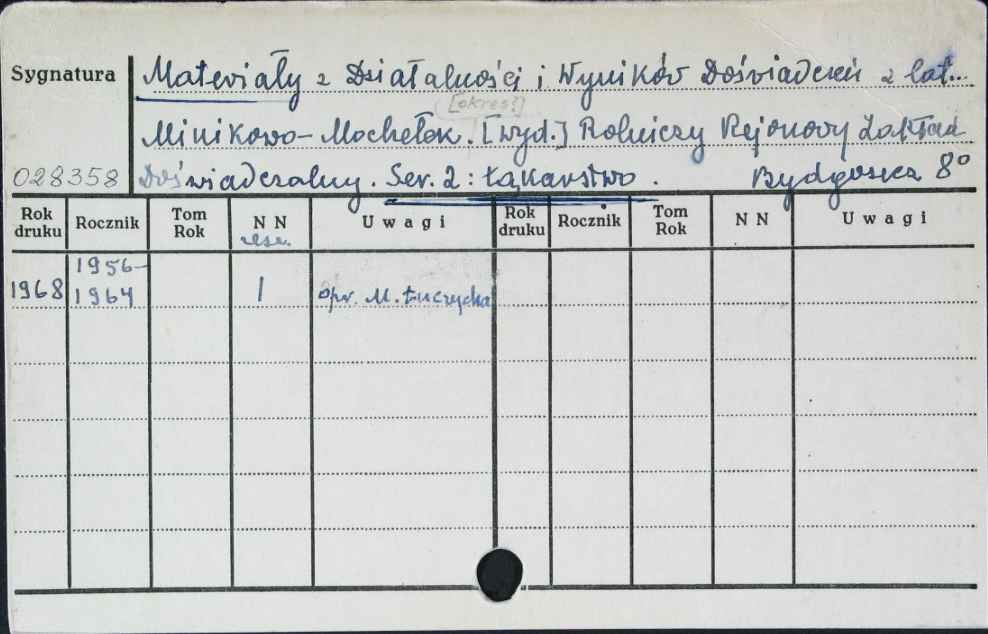 Sygnatura
Materiały z Działalności i Wyników Doświadczeń z lat...
[okres!]
Minikowo-Mochełek. [wyd.] Rolniczy Rejonowy Zakład
028358 Doświadczalny. Ser. 2: Łąkarstwo. Bydgoszcz 8°
Rok druku Rocznik Tom Rok N N Uwagi Rok druku Rocznik Tom Rok N N Uwagi
1956-
1968 1964 1 opr. M. Łuczycka